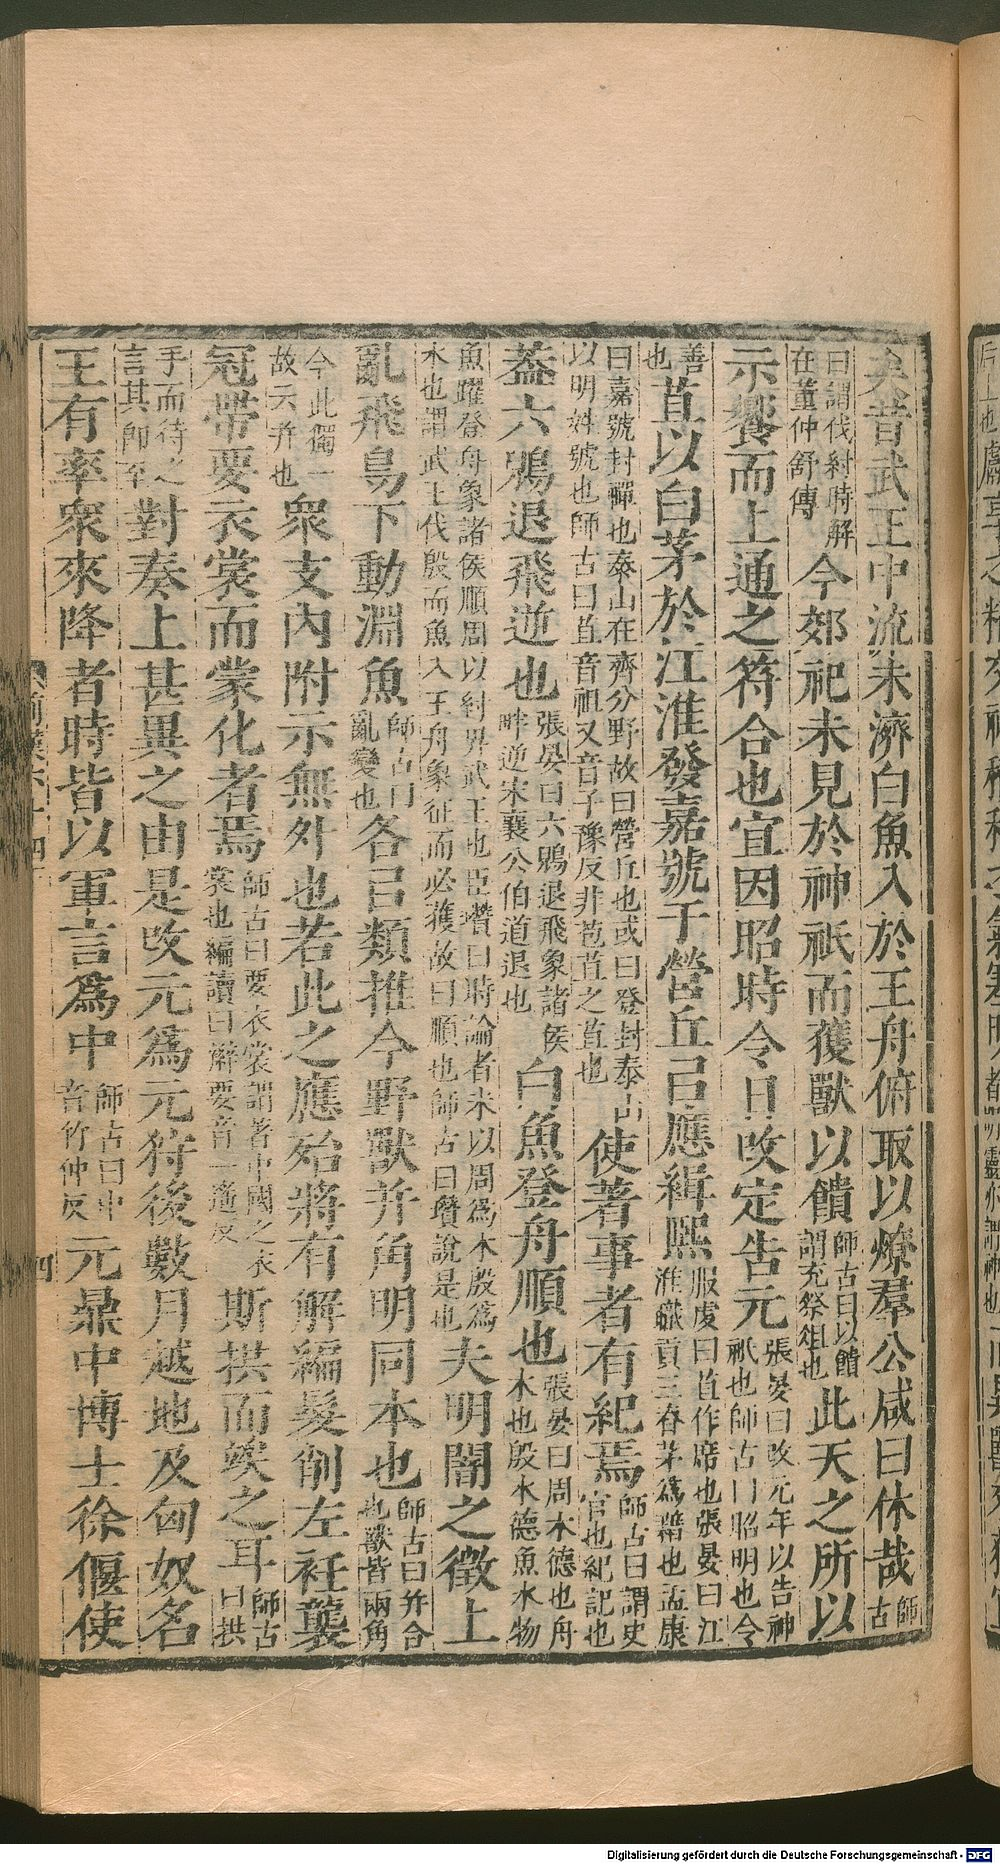 矣昔武王中流未濟白魚入於王舟俯取以燎羣公咸曰休哉師古
曰謂伐紂時解在董仲舒傳今郊祀未見於神祇而獲獸以饋師古曰以饋謂充祭俎也此天之所以
示饗而上通之符合也宜因昭時令日攺定告元張晏曰攺元年以告神祇也師古曰昭明也令
善也苴以白茅於江淮發嘉號于營丘㠯應緝熙服虔曰苴作席也張晏曰江淮職貢三脊茅爲藉也孟康
曰嘉號封禪也泰山在齊分野故曰營丘也或曰登封泰山以明姓號也師古曰苴音祖又音子豫反非苞苴之苴也使著事者有紀焉師古曰謂史官也紀記也
葢六鶂退飛逆也張晏曰六鶂退飛象諸侯畔逆宋襄公伯道退也白魚登舟順也張晏曰周木德也舟木也殷水德魚水物
魚躍登舟象諸侯順周以紂畀武王也臣瓚曰時論者未以周爲木殷爲水也謂武王伐殷而魚入王舟象征而必獲故曰順也師古曰瓚說是也夫明闇之徵上
亂飛鳥下動淵魚師古曰亂變也各㠯類推今野獸并角明同本也師古曰并合也獸皆兩角
今此獨一故云并也衆支內附示無外也若此之應殆將有解編髮削左衽襲
冠帶要衣裳而蒙化者焉師古曰要衣裳謂著中國之衣裳也編讀曰辮要音一遙反斯拱而竢之耳師古曰拱
手而待之言其卽至對奏上甚異之由是攺元爲元狩後數月越地及匈奴名
王有率衆來降者時皆以軍言爲中師古曰中音竹仲反元鼎中博士徐偃使
四
Digitalisierung gefördert durch die Deutsche Forschungsgemeinschaft - DFG